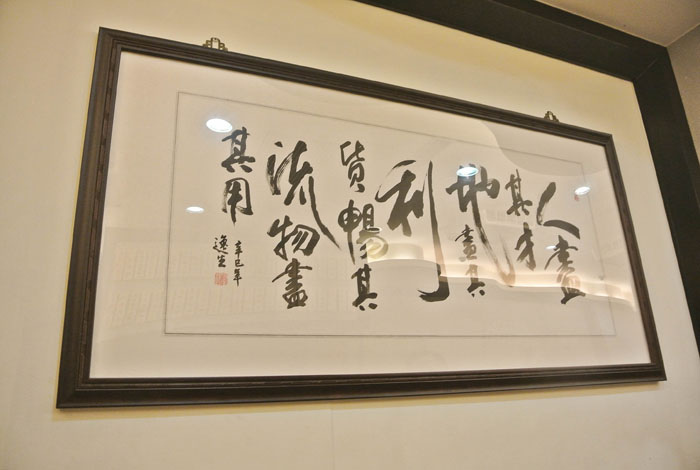 人盡
其才
地盡其
利
貨暢其
流物盡
其用
辛巳年
逸生